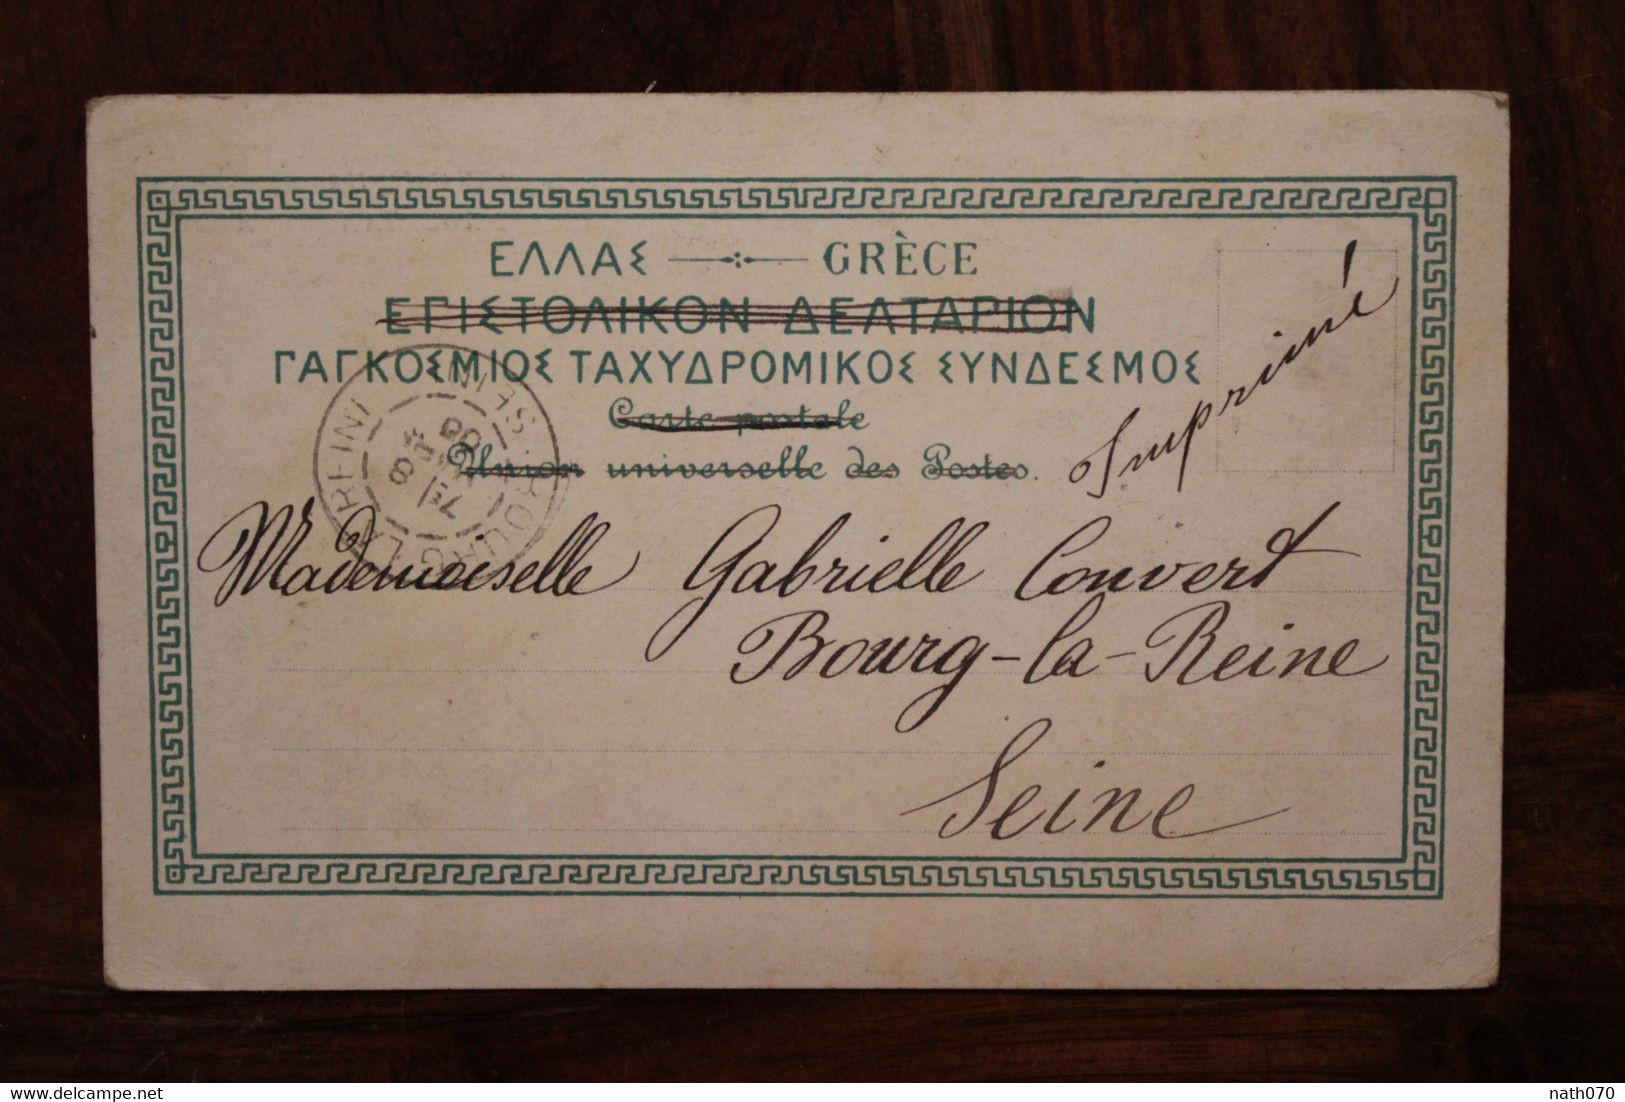 ΕΛΛΑΣ GRÈCE
ΕΓΙΣΤΟΛΙΚΟΝ ΔΕΛΤΑΡΙΟΝ
ΓΑΓΚΟΣΜΙΟΣ ΤΑΧΥΔΡΟΜΙΚΟΣ ΣΥΝΔΕΣΜΟΣ
Carte postale
Union universelle des Postes.
Imprimé
Mademoiselle Gabrielle Convert
Bourg-la-Reine
Seine
delcampe.net
nath070